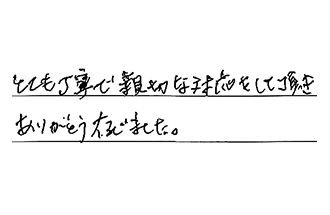 とても丁寧で親切な対応をして頂き
ありがとう在じました。